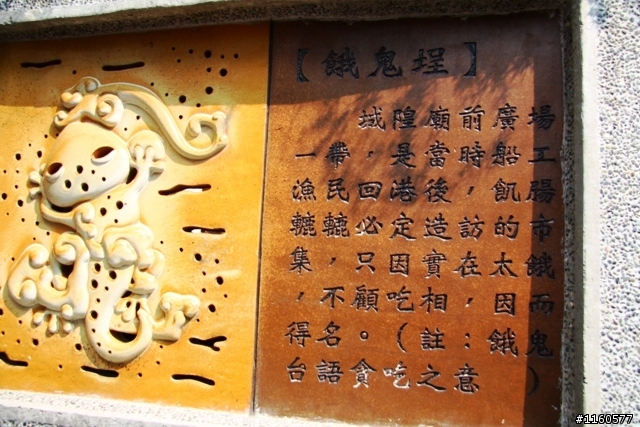 【餓鬼埕】
域隍廟前廣場
一帶，是當時船工
漁民回港後，飢腸
轆轆必定造訪的市
集，只因實在太餓
，不顧吃相，因而
得名。（註：餓鬼
台語貪吃之意）
#1160577